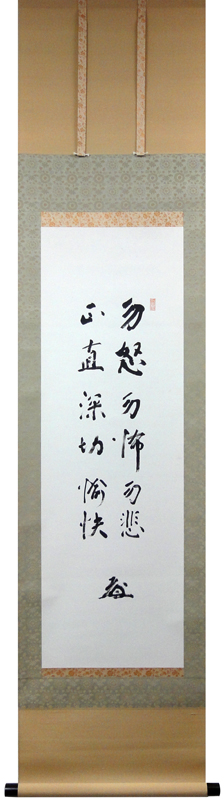 勿怒勿怖勿悲
正直深切愉快